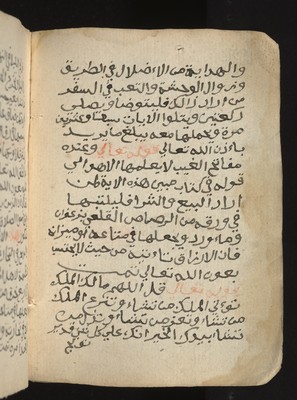 والهداية من الاضلال في الطريق
وزوال الوحشة والتعب في السفر
من اراد ذالك فليتوضا ويصلي
ركعتين ويتلوا الايات سبعا وعشرين
مرة ويحملها معه يبلغ ما يريد
باذن الله تعالى قوله تعالى وعنده
مفاتح الغيب لا يعلمها الا هو الى
قوله في كتاب مبين هذه الاية لمن
اراد البيع والشرا فليكتبها
في ورقه من الرصاص القلعي بزعفران
وماورد ويجعلها في متاعه او ميزانه
فان الارزاق تاتيه من حيث لا يحتسب
بعون الله تعالى تمت
قوله تعالى قل اللهم مالك الملك
توتي الملك من تشاء وتنزع الملك
من تشاء وتعز من تشاء وتذل من
تشا بيدك الخير انك على كل شي قدير
تولج